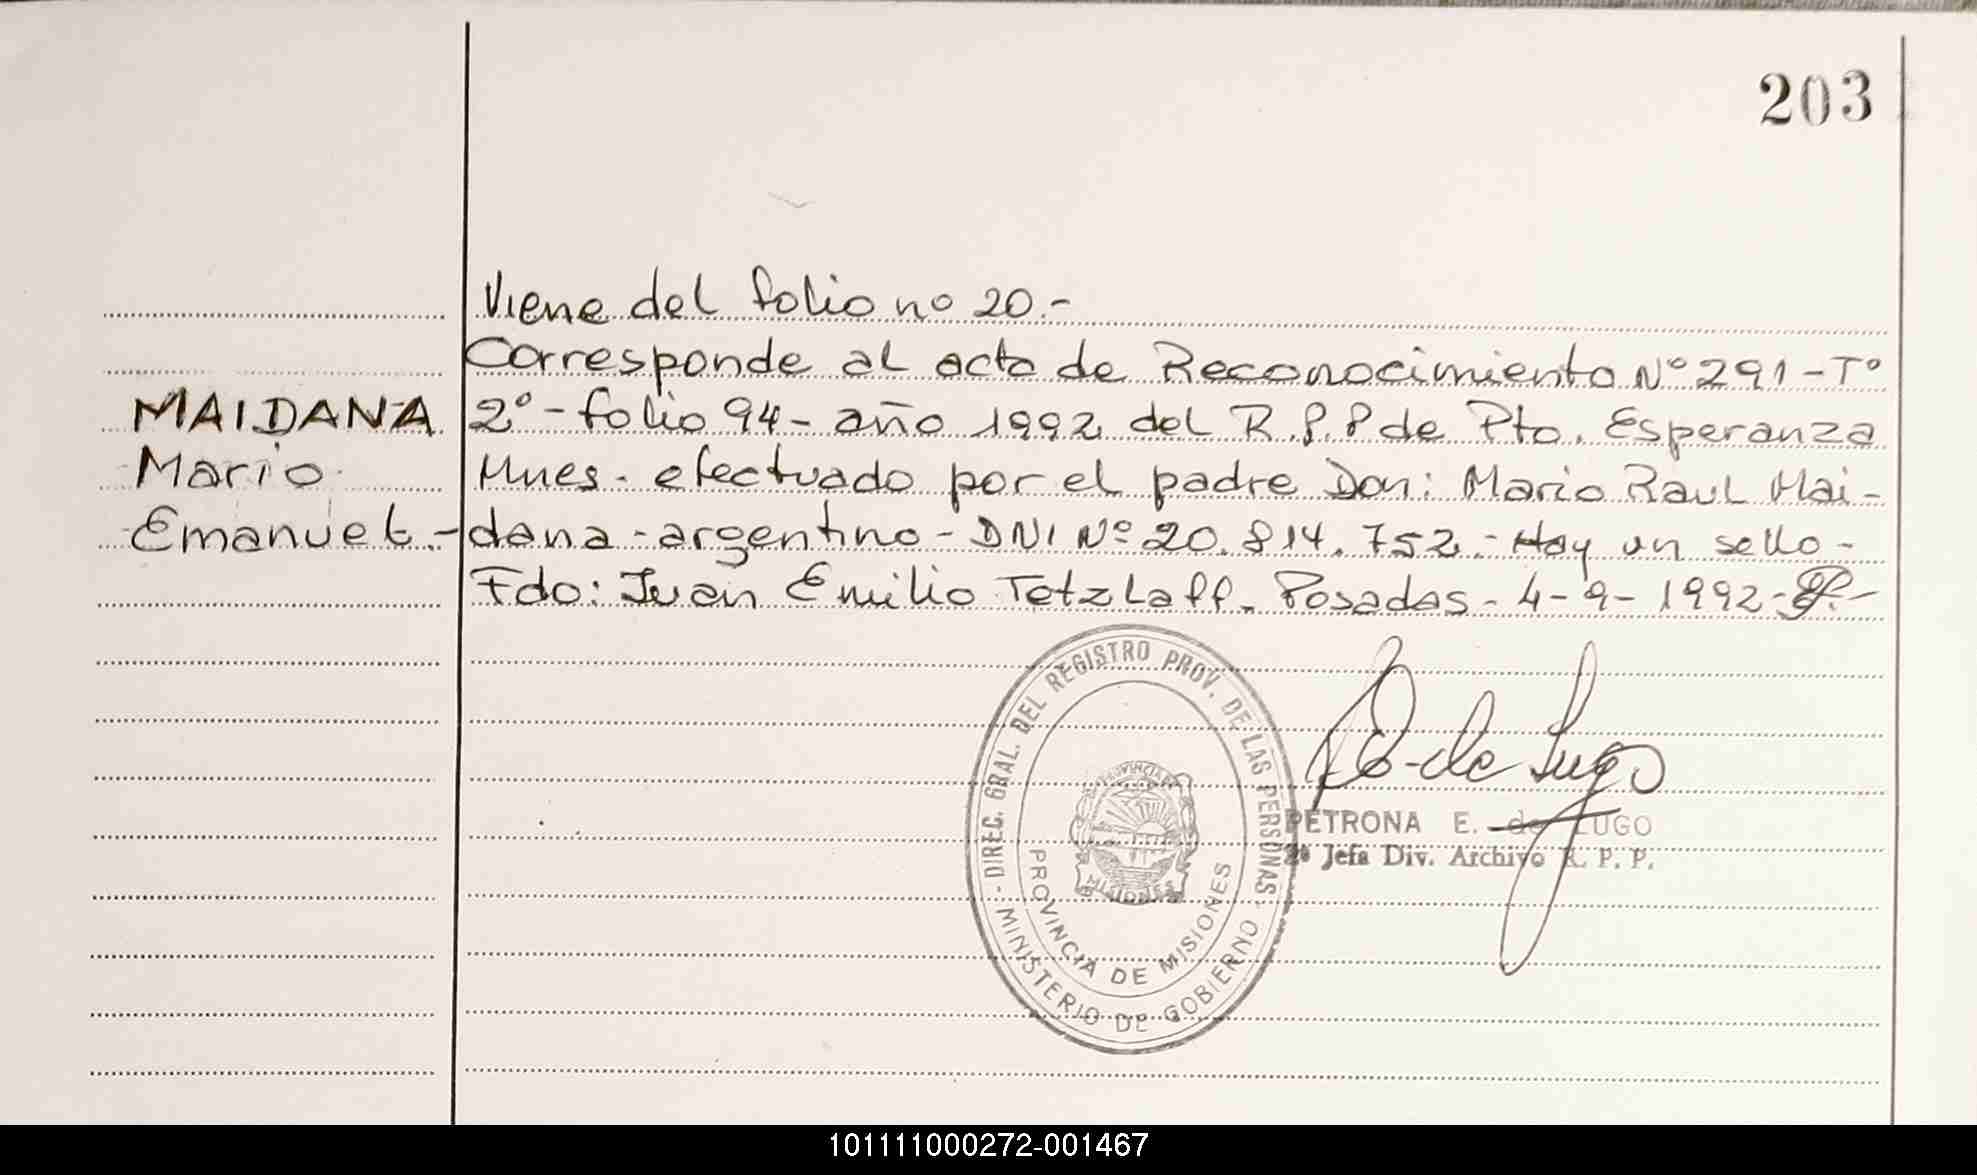 203
Viene del folio nº 20.-
Corresponde al acta de Reconocimiento Nº 291 - Tº
MAIDANA 2º - folio 94 - año 1992 del R.P.P de Pto. Esperanza
Mario Mnes. efectuado por el padre Don: Mario Raul Mai-
Emanuel.- dana - argentino - DNI Nº 20.814.752.- Hay un sello -
Fdo: Juan Emilio Tetzlaff. Posadas - 4-9-1992-
DIREC. GRAL. DEL REGISTRO PROV. DE LAS PERSONAS
PROVINCIA DE
MISIONES
PROVINCIA DE MISIONES
MINISTERIO DE GOBIERNO
de Lugo
PETRONA E. de LUGO
2º Jefa Div. Archivo R. P. P.
101111000272-001467